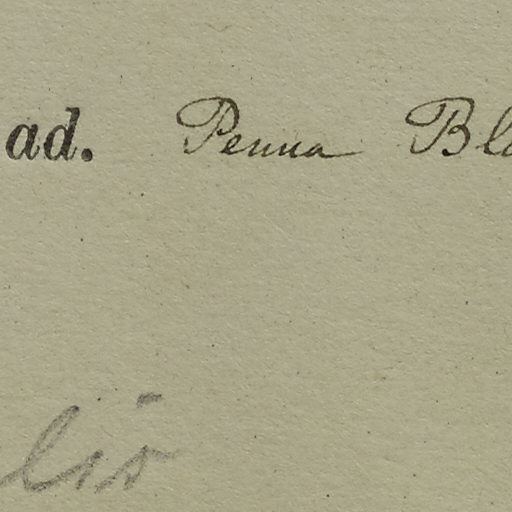 ad. Penna Bla
lis